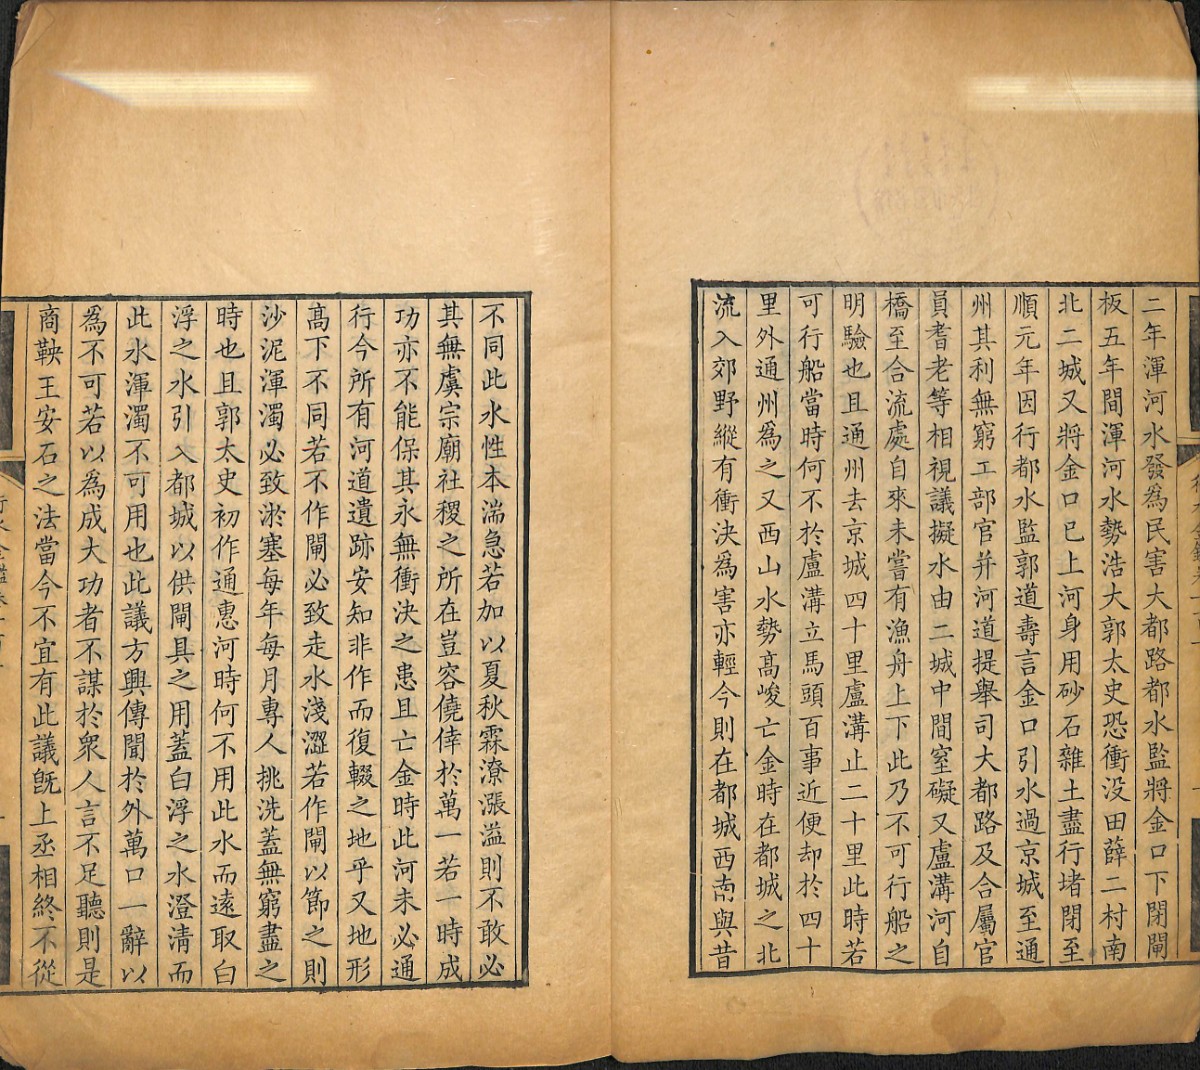 二年渾河水發爲民害大都路都水監將金口下閉閘
板五年間渾河水勢浩大郭太史恐衝没田薛二村南
北二城又將金口已上河身用砂石雜土盡行堵閉至
順元年因行都水監郭道壽言金口引水過京城至通
州其利無窮工部官并河道提舉司大都路及合屬官
員耆老等相視議擬水由二城中間窒礙又盧溝河自
橋至合流處自來未嘗有漁舟上下此乃不可行船之
明驗也且通州去京城四十里盧溝止二十里此時若
可行船當時何不於盧溝立馬頭百事近便却於四十
里外通州爲之又西山水勢高峻亡金時在都城之北
流入郊野縱有衝決爲害亦輕今則在都城西南與昔
不同此水性本湍急若加以夏秋霖潦漲溢則不敢必
其無虞宗廟社稷之所在豈容僥倖於萬一若一時成
功亦不能保其永無衝決之患且亡金時此河未必通
行今所有河道遺跡安知非作而復輟之地乎又地形
高下不同若不作閘必致走水淺澀若作閘以節之則
沙泥渾濁必致淤塞每年每月專人挑洗蓋無窮盡之
時也且郭太史初作通惠河時何不用此水而遠取白
浮之水引入都城以供閘具之用蓋白浮之水澄清而
此水渾濁不可用也此議方興傳聞於外萬口一辭以
爲不可若以爲成大功者不謀於衆人言不足聽則是
商鞅王安石之法當今不宜有此議既上丞相終不從